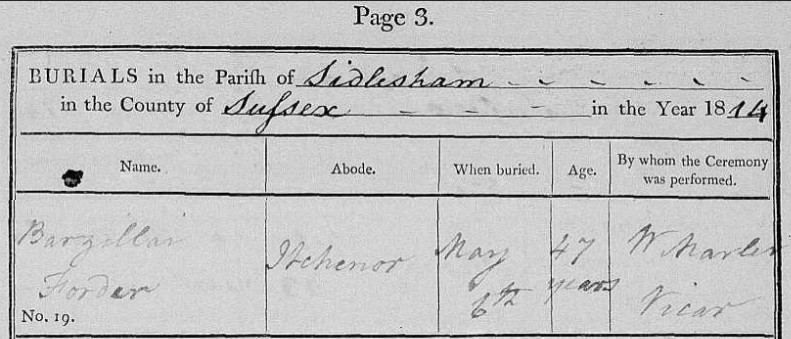 Page 3.
BURIALS in the Pariſh of Sidlesham
in the County of Suſsex in the Year 1814
Name. Abode. When buried. Age. By whom the Ceremony was performed.
Barzillai Itchenor May 47 W Marler
Forder 6th years Vicar
No. 19.